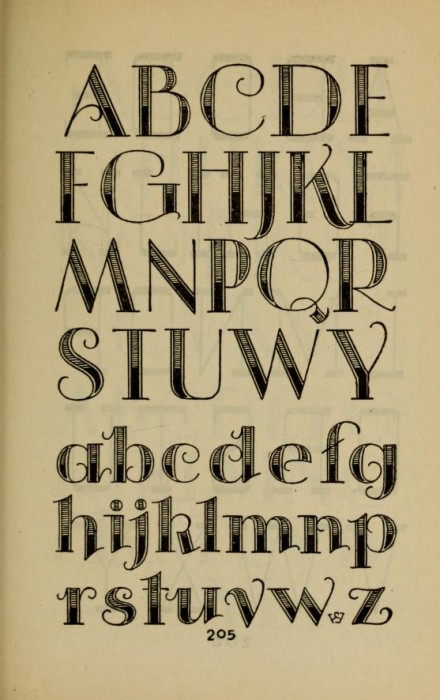 ABCDE
FGHIJKL
MNPQR
STUWY
abcdefg
hijklmnp
rstuvw z
205